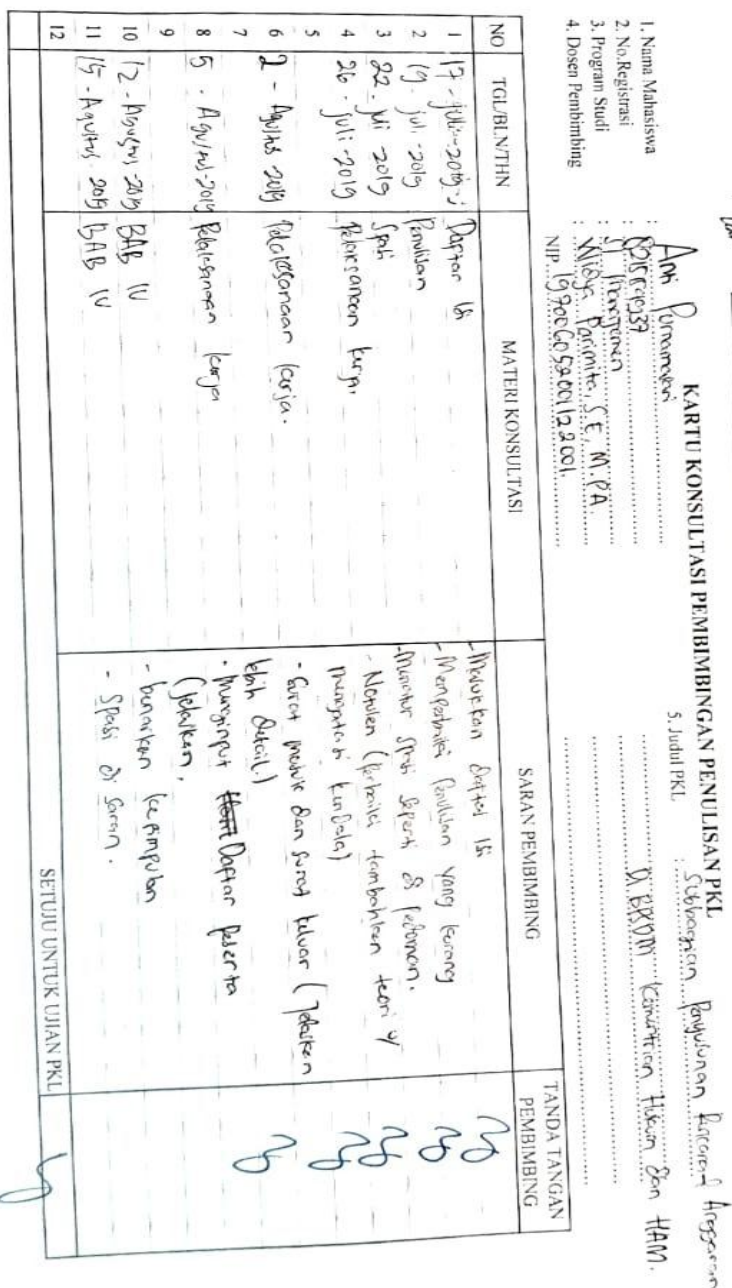 KARTU KONSULTASI PEMBIMBINGAN PENULISAN PKL
1. Nama Mahasiswa : Anti Purnamasari
2. No.Registrasi :
3. Program Studi : S1 Manajemen
4. Dosen Pembimbing : Widya Parimita, S.E, M.PA
NIP. 197006052001122001.
5. Judul PKL : Subbagian Penyusunan Rencana Anggaran
Di BPSDM Kementrian Hukum dan HAM.
NO TGL/BLN/THN MATERI KONSULTASI SARAN PEMBIMBING TANDA TANGAN PEMBIMBING
1 17 - juli - 2019 Daftar Isi - Masukkan Daftar Isi
2 19 - juli - 2019 Penulisan - Memperbaiki Penulisan yang kurang
3 22 - juli - 2019 Spasi - Mengatur Spasi Seperti di Pedoman.
4 26 - juli - 2019 Pelaksanaan kerja. - Notulen (Perbaiki tambahkan teori u/
5 mengatasi kendala)
6 2 - Agustus 2019 Pelaksanaan kerja. - Surat masuk dan surat keluar (Jelaskan
7 lebih detail.)
8 5 - Agustus - 2019 Pelaksanaan kerja - Menginput Daftar Peserta
9 (Jelaskan,
10 12 - Agustus - 2019 BAB IV - benarkan kesimpulan
11 15 - Agustus - 2019 BAB IV - Spasi di Saran.
12
SETUJU UNTUK UJIAN PKL